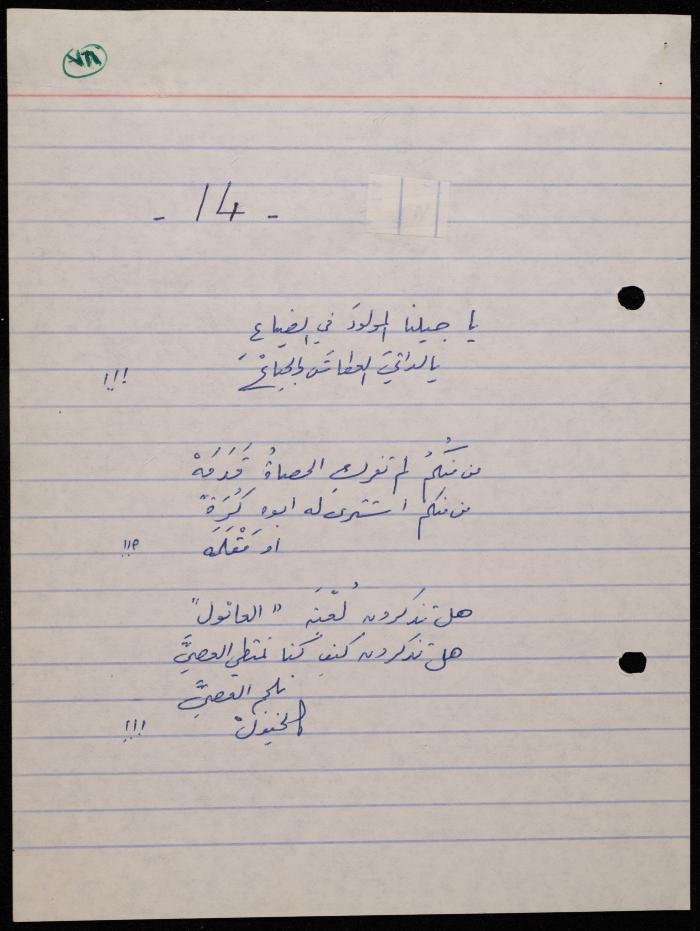 - 14 -
يا جيلنا المولودَ في الضياع
يا لداتيَ العطاشَ والجياعْ !!!
من منكُمُ لم تفرك الحصاةُ قَدَمَهْ
من منكم اشترى له ابوه كُرَةً
او مَقْلَمَه !!؟
هل تذكرون لُعْبَةَ "الغاتول"
هل تذكرون كيف كنا نمتطي العصيَّ
نلجم العصيَّ
كالخيولْ !!!